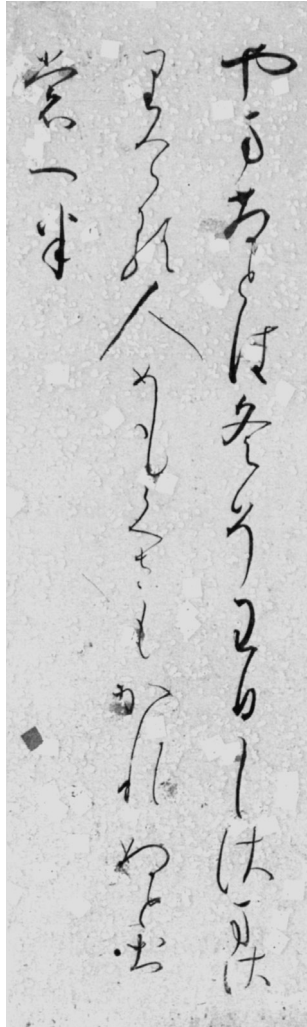 やまさとは冬そわひしさまさ
りける人めもくさもかれぬとお
もへは